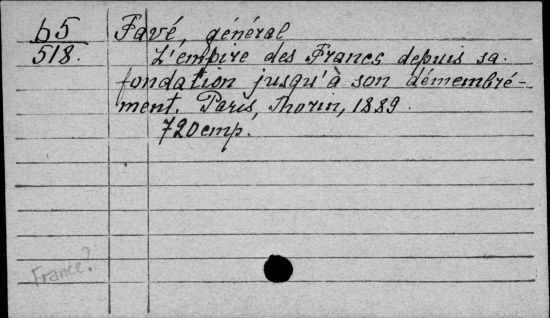 65
518.
Favé, général
L'empire des Francs depuis sa
fondation jusqu'à son démembré-
ment. Paris, Thorin, 1889.
720 p.
France?